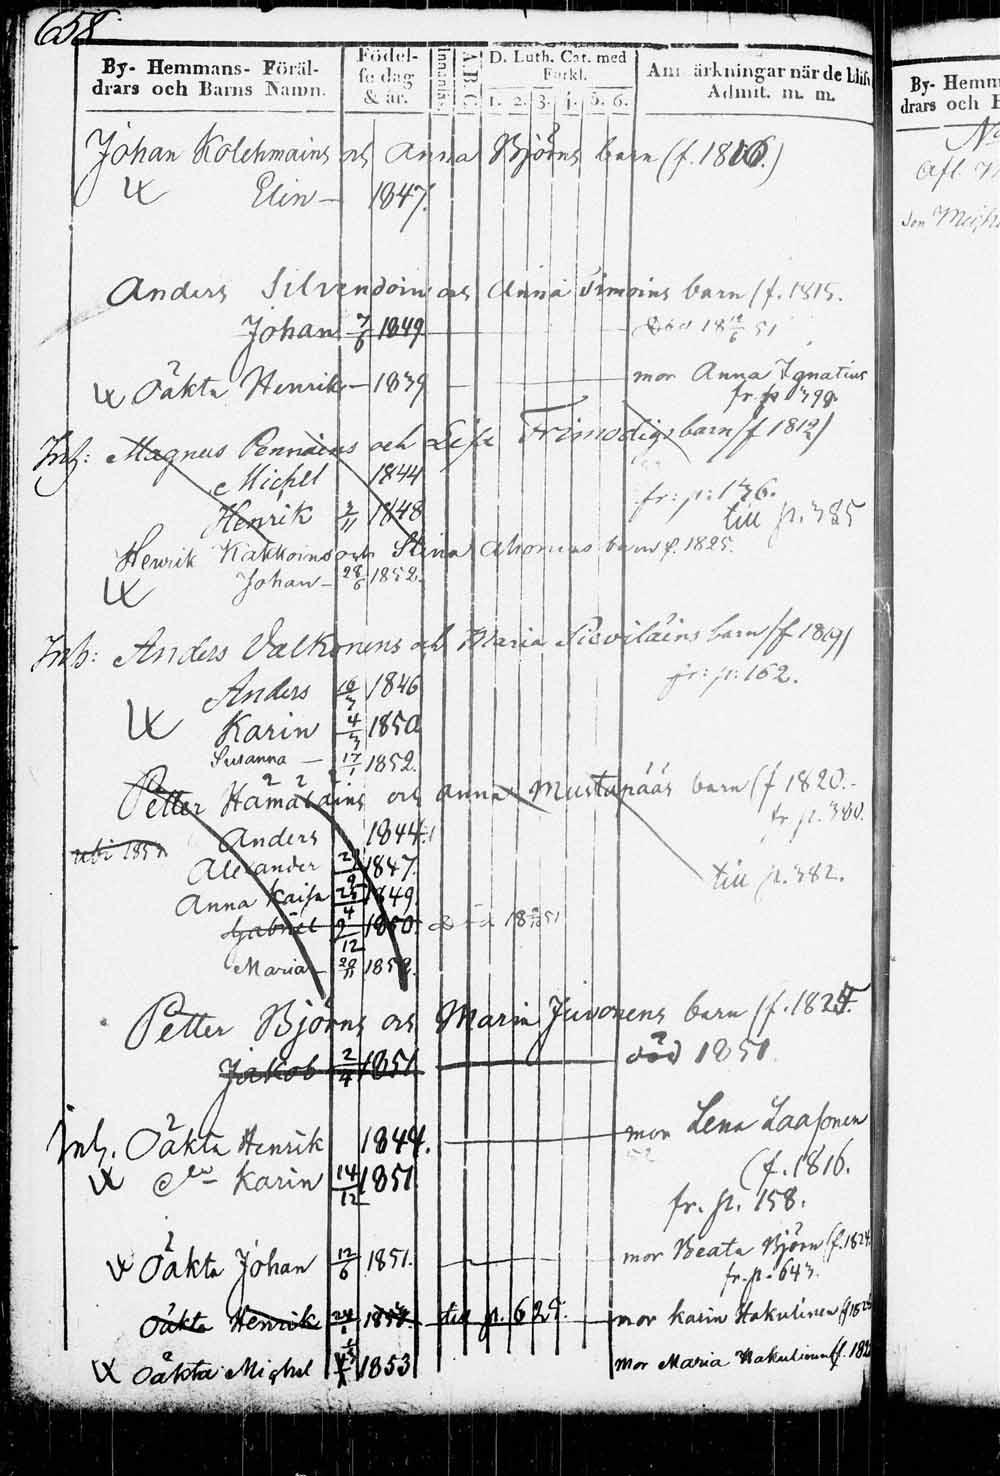 658
By- Hemmans- Föräl-
drars och Barns Namn.
Födel-
se dag
& år.
Innanläs.
A B C
D. Luth. Cat. med
Förkl.
1. 2. 3. 4. 5. 6.
Anmärkningar när de blifv.
Admit. m. m.
Johan Kolehmains och Anna Björns barn (f. 1816.)
Elin 1847.
Anders Silvendoins och Anna Timoins barn (f. 1815.
Johan 7/6 1849 Död 18 51
Oäkta Henrik 1839 mor Anna Ignatius
fr. p. 399.
Inh: Magnus Pennains och Lisa Frimodigs barn (f 1812)
Michel 1844
fr: p: 136.
Henrik 3/11 1848 till p. 385
Henrik Kakkoins och Stina Ahonens barn f. 1825.
Johan 28/6 1852.
Inh: Anders Valkonens och Maria Sieviläins barn (f 1819)
fr: p: 162.
Anders 16/3 1846
Karin 4/3 1850
Susanna 17/1 1852.
Petter Hämäläins och Anna Mustapääs barn (f 1820.
fr. p. 380.
Anders 1844
1857
Alexander 1847.
till p. 382.
Anna Kaisa 25/4 1849.
Gabriel 9/12 1850 Död 18 51
Maria 20/11 1852.
Petter Björns och Maria Juvonens barn (f. 1824.
Jakob 2/4 1851 död 1851.
Inh. Oäkta Henrik 1844. mor Lena Laasonen
(f. 1816.
Karin 14/12 1851
fr. p. 158.
Oäkta Johan 12/6 1851. mor Beata Björn (f. 1824
fr. p. 643.
Oäkta Henrik 24/1 till p. 625. mor Karin Hakulinen
Oäkta Michel 1853 mor Maria Hakulinen (f. 182
By- Hemm
drars och B